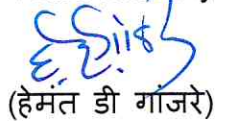 (हेमंत डी गांजरे)